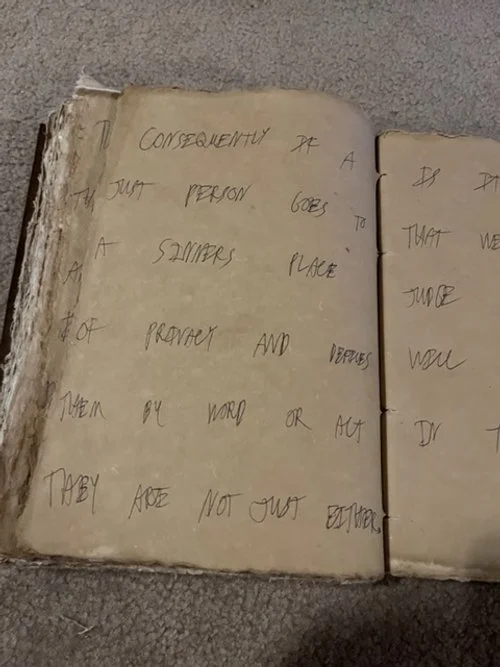 CONSEQUENTLY IF A
JUST PERSON GOES TO
A SINNERS PLACE
OF PRIVACY AND DEFILES
THEM BY WORD OR ACT
THEY ARE NOT JUST EITHER.
IS IT
THAT WE
JUDGE
WILL
IN